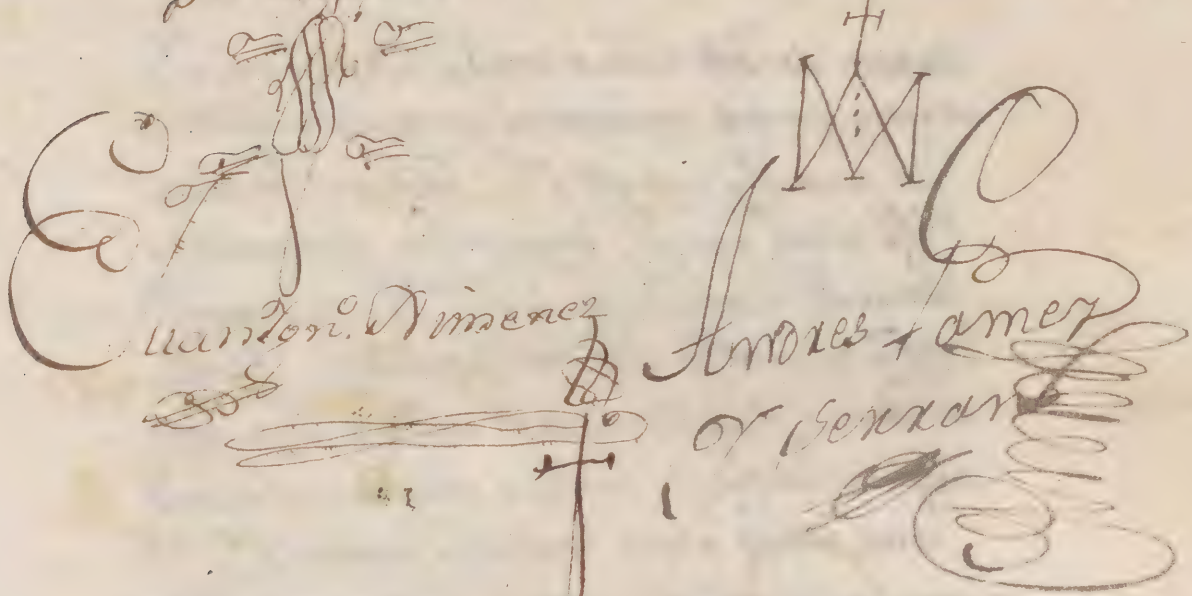 Juan Anton.º Ximenez
Andres Gamez
y Serrano